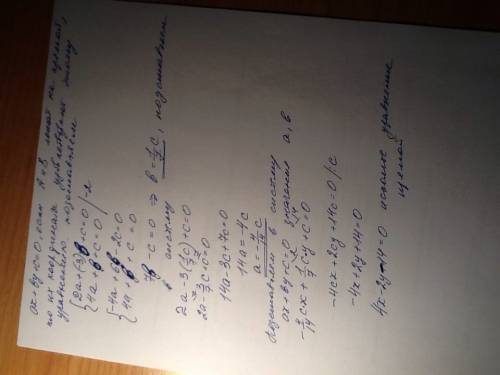 ax+by+c=0, если A и B лежат на прямой,
то их координаты удовлетворяют этому
уравнению
{2a+(-3)b+c=0 |·(-2)
{4a+b+c=0
{-4a+6b-2c=0
{4a+b+c=0
7b-c=0 ⇒ b=1/7c, подставляем
в систему
2a-3(1/7c)+c=0
2a-3/7c+c=0
14a-3c+7c=0
14a=-4c
a=-4/14c
Подставляем в систему
ax+by+c=0 значение a, b
-4/14cx+1/7c·y+c=0
-4cx+2cy+14c=0 |:c
-4x+2y+14=0
4x-2y-14=0 искомое уравнение